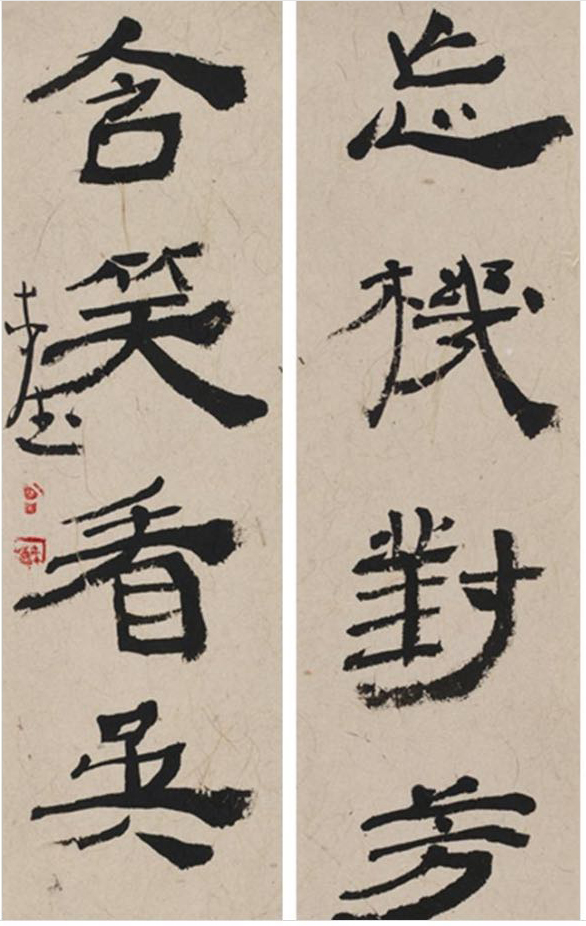 忘機對芳
含笑看吳